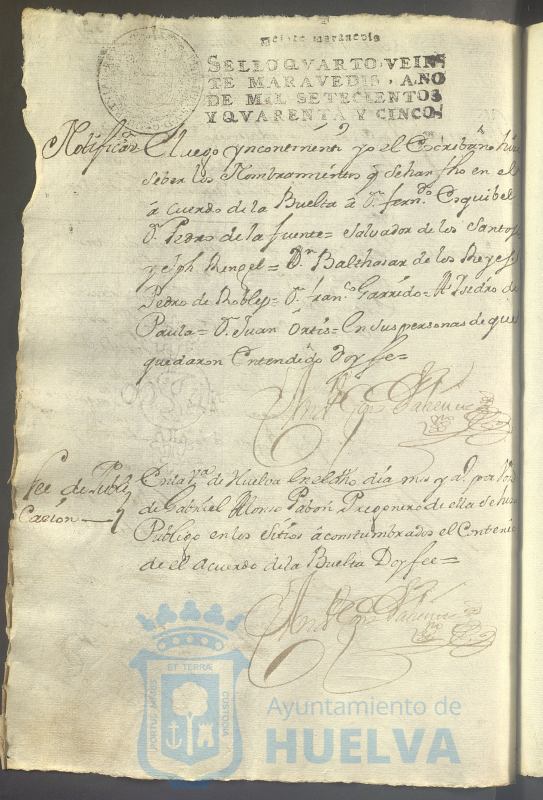 Veinte maravedis
SELLO QVARTO, VEIN
TE MARAVEDIS, AÑO
DE MIL SETECIENTOS
Y QVARENTA Y CINCO.
Notificaᵒⁿ E luego yncontinenti yo el Escribano hice
saber los Nombramientos q̃ sehan fho en el
acuerdo de la Buelta â Dⁿ. fernᵈᵒ. Esquibel
Dⁿ. Pedro de la fuente= Salvador de los Santos
Rengel= Dⁿ. Balthasar de los Reyes
Pedro de Robles= Dⁿ. franᶜᵒ Garrido= Isidro de
Paula= Dⁿ. Juan Ortis= En sus personas de que
quedaron Entendidos Doy fee=
fee de Publi En la Vᵃ. de Huelva En el dho dia mes y aº. por voz
cacion de Gabriel Alonso Pabon Pregonero de ella se hizo
Publico en los Sitios acostumbrados el Conteni
de el Acuerdo de la Buelta Doy fee=
PORTUS MARIS
ET TERRAE
CUSTODIA
Ayuntamiento de
HUELVA